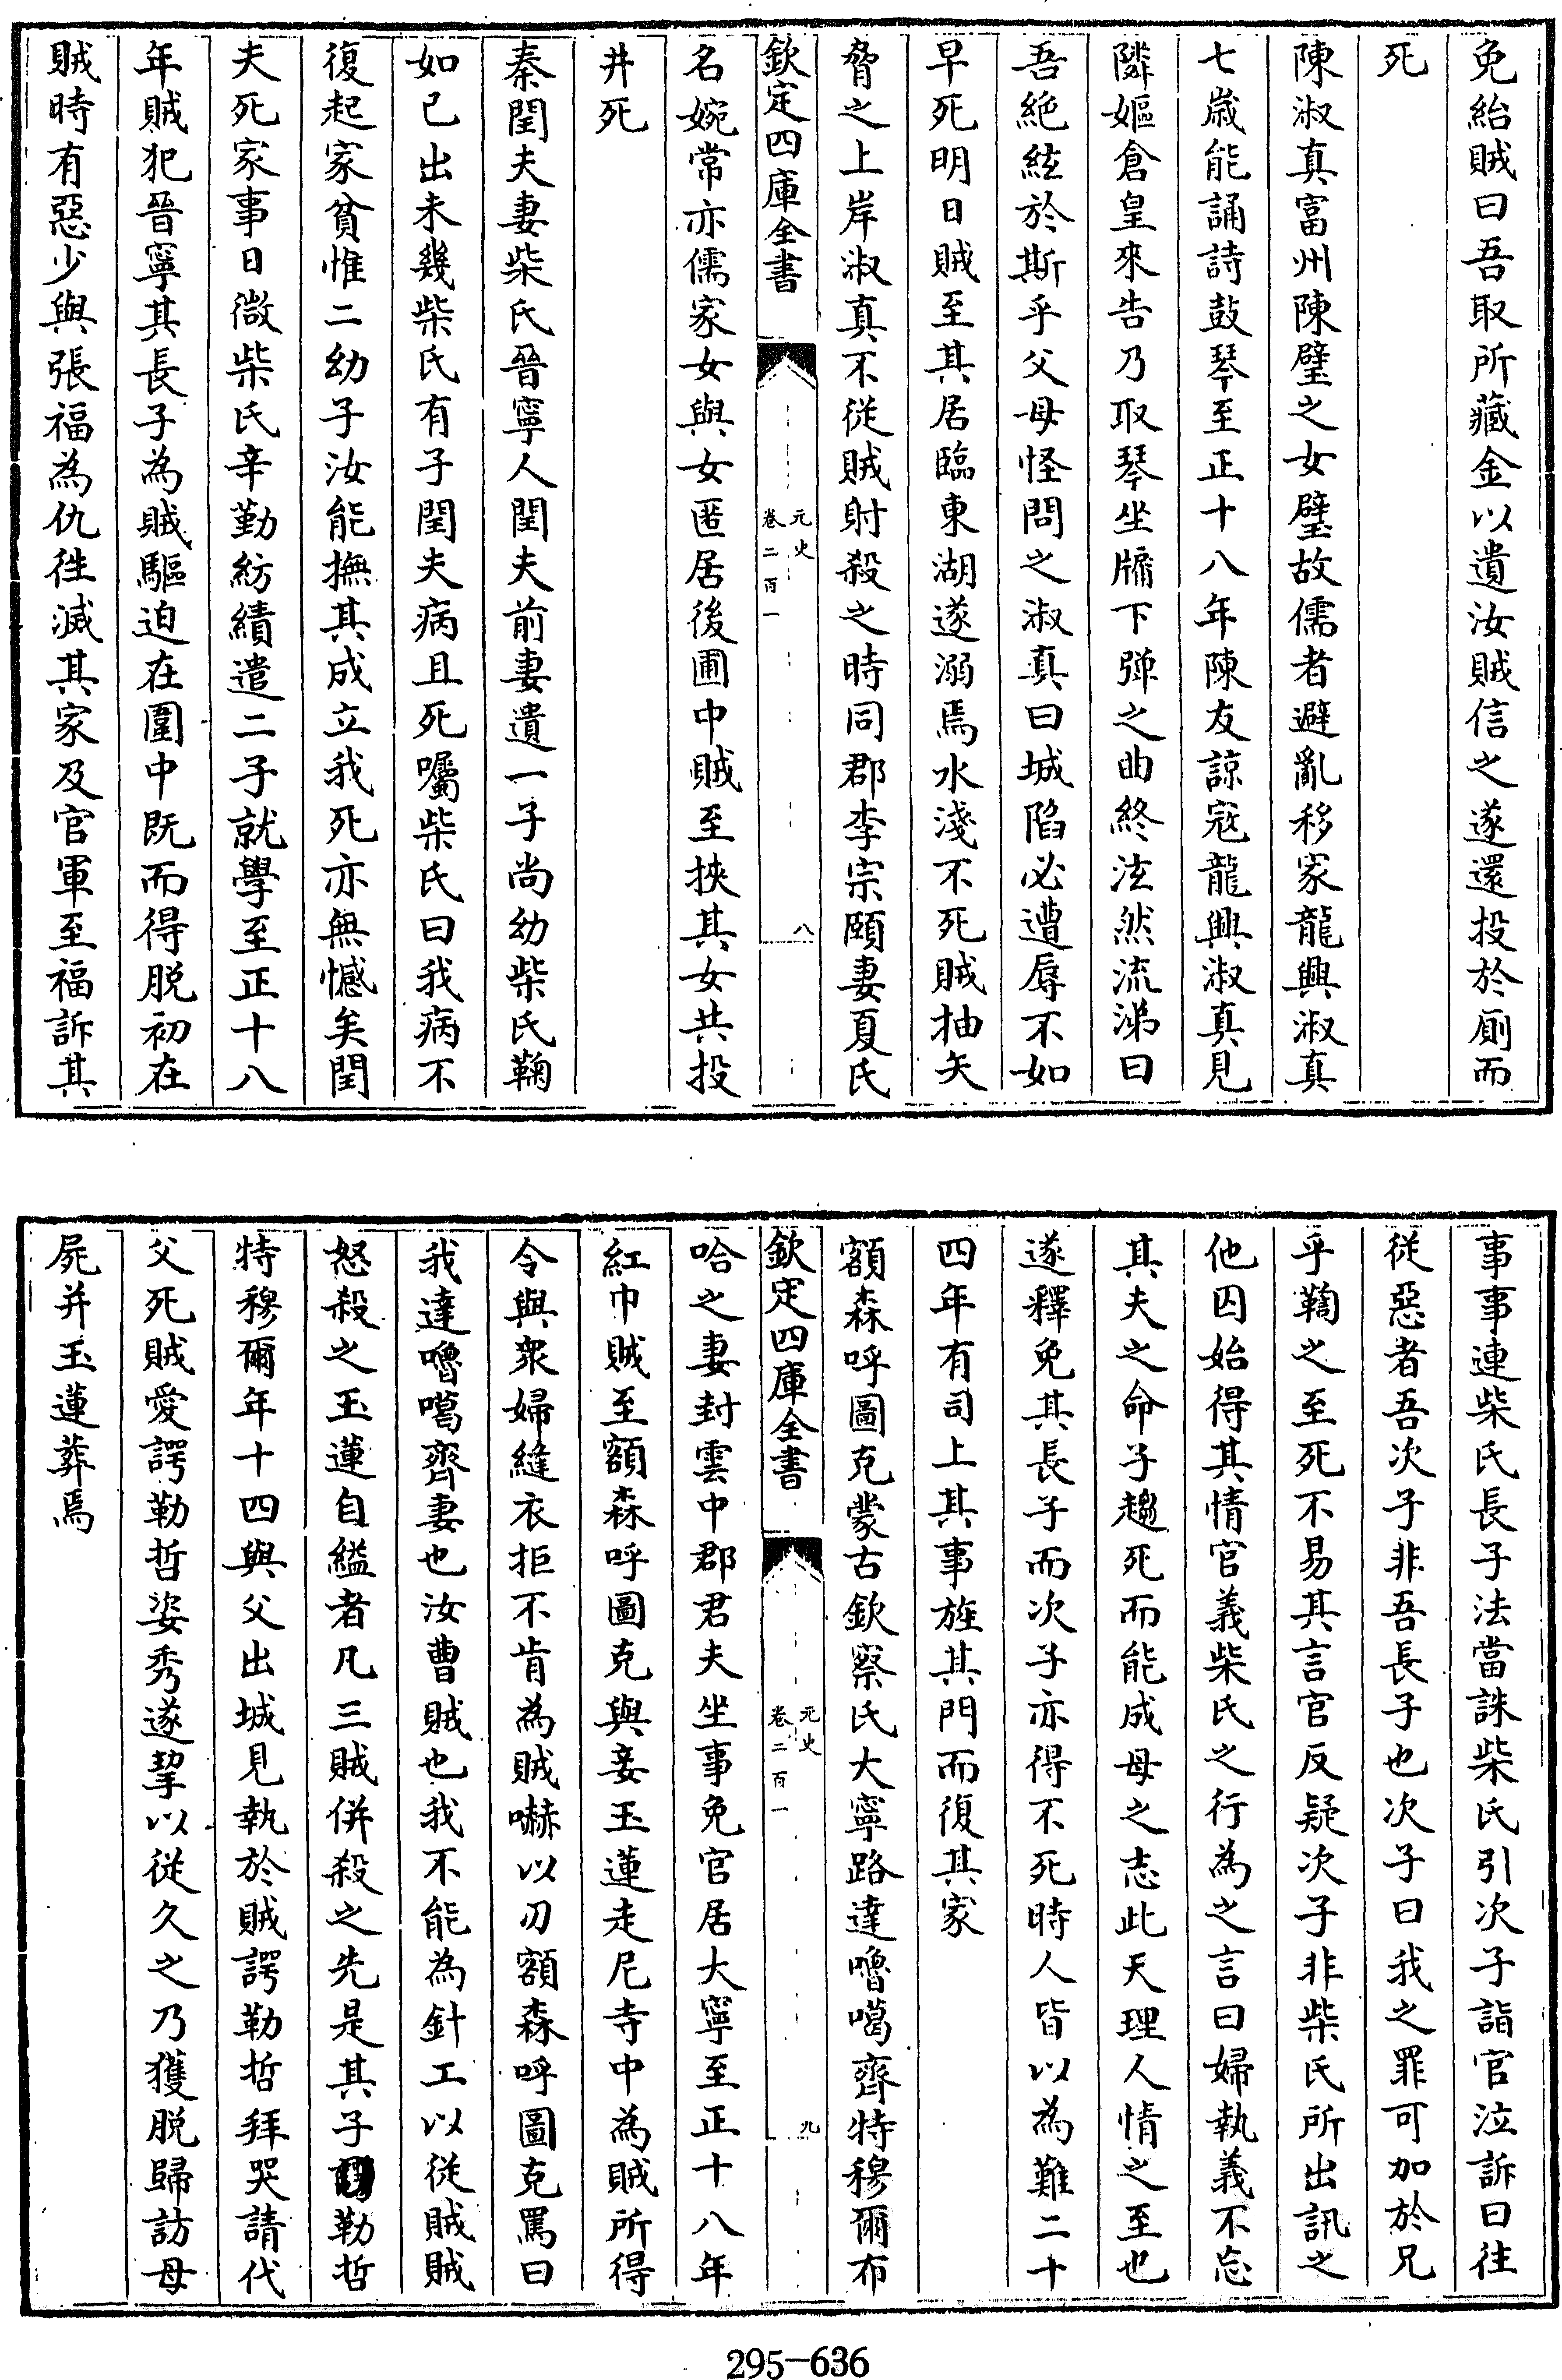 免紿賊曰吾取所藏金以遺汝賊信之遂還投於厠而
死
陳淑真富州陳璧之女璧故儒者避亂移家龍興淑真
七歳能誦詩鼓琴至正十八年陳友諒宼龍興淑真見
隣嫗倉皇來告乃取琴坐牖下弹之曲終泫然流涕曰
吾絶絃於斯乎父母怪問之淑真曰城陷必遭辱不如
早死明日賊至其居臨東湖遂溺焉水淺不死賊抽矢
脅之上岸淑真不從賊射殺之時同郡李宗頤妻夏氏
欽定四庫全書
元史
卷二百一
八
名婉常亦儒家女與女匿居後圃中賊至挾其女共投
井死
秦閏夫妻柴氏晉寧人閏夫前妻遺一子尚幼柴氏鞠
如已出未幾柴氏有子閏夫病且死囑柴氏曰我病不
復起家貧惟二幼子汝能撫其成立我死亦無憾矣閏
夫死家事日微柴氏辛勤紡績遣二子就學至正十八
年賊犯晉寧其長子為賊驅迫在圍中既而得脱初在
賊時有惡少與張福為仇徃滅其家及官軍至福訴其
事事連柴氏長子法當誅柴氏引次子詣官泣訴曰往
從惡者吾次子非吾長子也次子曰我之罪可加於兄
乎鞫之至死不易其言官反疑次子非柴氏所出訊之
他囚始得其情官義柴氏之行為之言曰婦執義不忘
其夫之命子趨死而能成母之志此天理人情之至也
遂釋免其長子而次子亦得不死時人皆以為難二十
四年有司上其事旌其門而復其家
額森呼圖克蒙古欽察氏大寧路達嚕噶齊特穆爾布
欽定四庫全書
元史
卷二百一
九
哈之妻封雲中郡君夫坐事免官居大寧至正十八年
紅巾賊至額森呼圖克與妾玉蓮走尼寺中為賊所得
令與衆婦縫衣拒不肯為賊嚇以刃額森呼圖克罵曰
我達嚕噶齊妻也汝曹賊也我不能為針工以從賊賊
怒殺之玉蓮自縊者凡三賊併殺之先是其子勒哲
特穆爾年十四與父出城見執於賊諤勒哲拜哭請代
父死賊愛諤勒哲姿秀遂挈以從久之乃獲脱歸訪母
屍并玉蓮葬焉
295-636